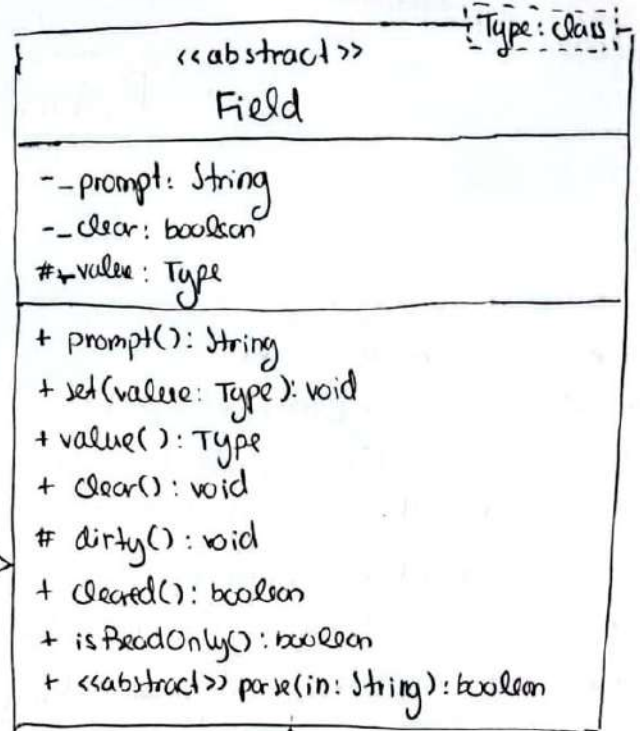 Type: Class
<<abstract>>
Field
- _prompt: String
- _clear: boolean
# _value: Type
+ prompt(): String
+ set(value: Type): void
+ value(): Type
+ clear(): void
# dirty(): void
+ cleared(): boolean
+ isReadOnly(): boolean
+ <<abstract>> parse(in: String): boolean